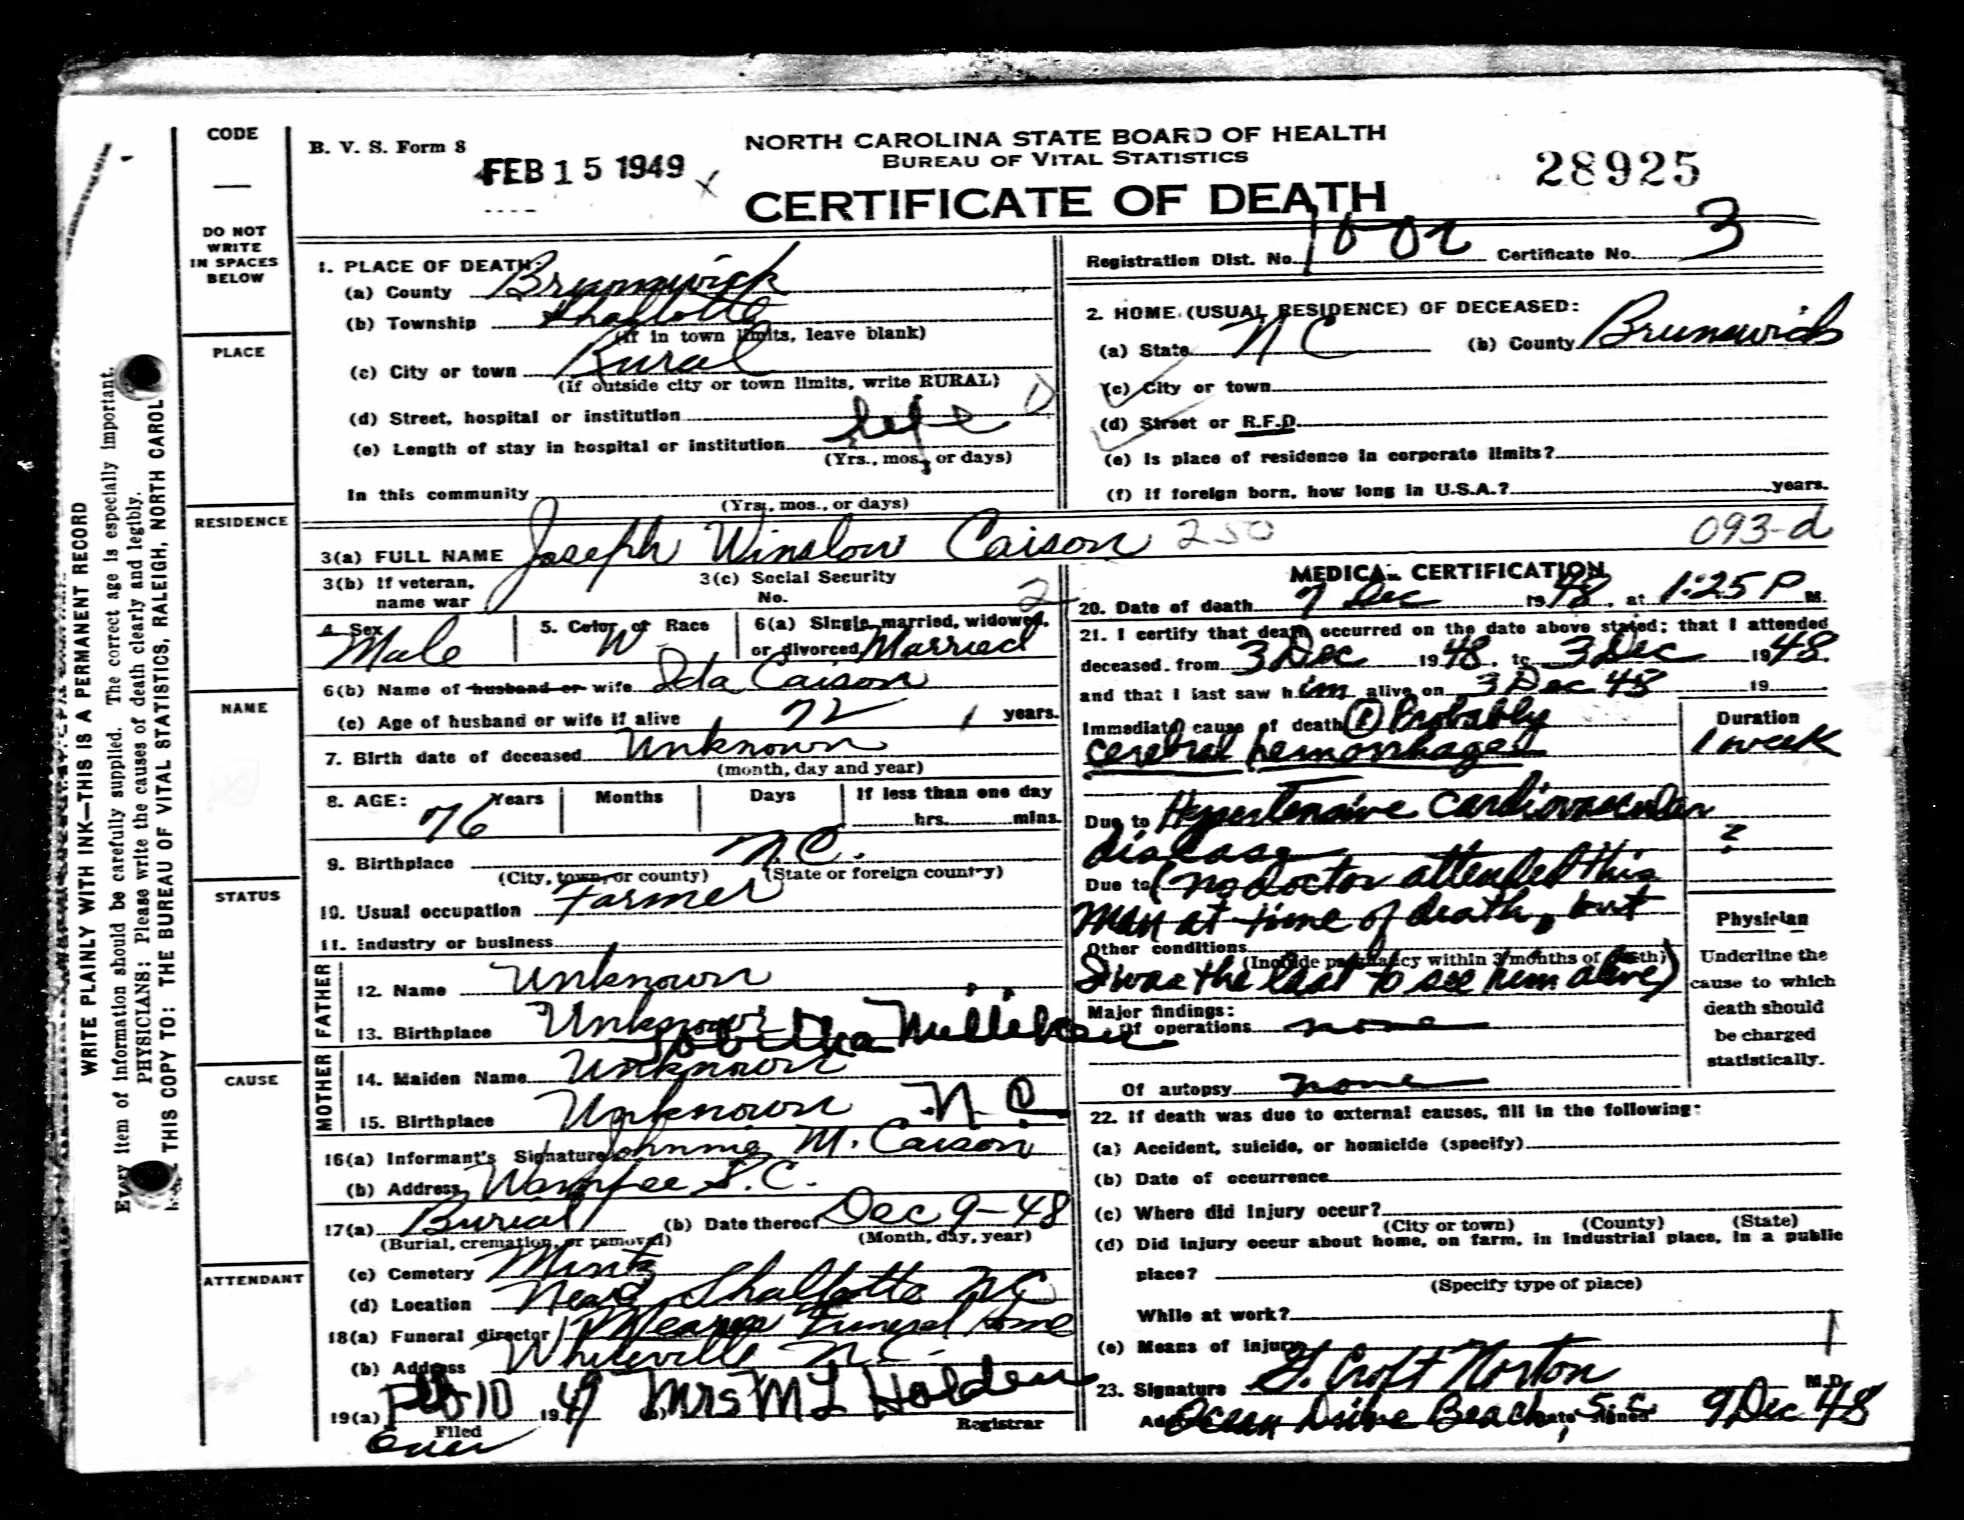 WRITE PLAINLY WITH INK—THIS IS A PERMANENT RECORD
Every item of information should be carefully supplied. The correct age is especially important.
PHYSICIANS: Please write the causes of death clearly and legibly.
THIS COPY TO: THE BUREAU OF VITAL STATISTICS, RALEIGH, NORTH CAROL
CODE
DO NOT
WRITE
IN SPACES
BELOW
PLACE
RESIDENCE
NAME
STATUS
CAUSE
ATTENDANT
B. V. S. Form 8
FEB 15 1949 x
NORTH CAROLINA STATE BOARD OF HEALTH
BUREAU OF VITAL STATISTICS
CERTIFICATE OF DEATH
28925
Registration Dist. No. 10-02 Certificate No. 3
1. PLACE OF DEATH:
(a) County Brunswick
(b) Township Shallotte
(If in town limits, leave blank)
(c) City or town Rural
(If outside city or town limits, write RURAL)
(d) Street, hospital or institution
(e) Length of stay in hospital or institution life
(Yrs., mos., or days)
In this community
(Yrs., mos., or days)
2. HOME (USUAL RESIDENCE) OF DECEASED:
(a) State N C (b) County Brunswick
(c) City or town
(d) Street or R.F.D.
(e) Is place of residence in corporate limits?
(f) If foreign born, how long in U.S.A.? years.
3(a) FULL NAME Joseph Winslow Caison 250 093-d
3(b) If veteran,
name war
3(c) Social Security
No.
2
4. Sex Male
5. Color or Race W
6(a) Single, married, widowed,
or divorced Married
6(b) Name of husband or wife Ida Caison
(c) Age of husband or wife if alive 72 years.
7. Birth date of deceased Unknown
(month, day and year)
8. AGE: 76 Years Months Days If less than one day
hrs. mins.
9. Birthplace N.C.
(City, town, or county) (State or foreign country)
10. Usual occupation Farmer
11. Industry or business
FATHER
12. Name Unknown
13. Birthplace Unknown
MOTHER
Tobitha Milliken
14. Maiden Name Unknown
15. Birthplace Unknown N C
16(a) Informant's Signature Johnnie M. Caison
(b) Address Wampee S.C.
17(a) Burial (b) Date thereof Dec 9-48
(Burial, cremation, or removal) (Month, day, year)
(c) Cemetery Mintz
(d) Location Near Shallotte NC
18(a) Funeral director Funeral Home
(b) Address Whiteville N.C.
19(a) Feb 10 1949 (b) Mrs M L Holden
Filed Registrar
over
MEDICAL CERTIFICATION
20. Date of death 7 Dec 1948, at 1:25 P M.
21. I certify that death occurred on the date above stated; that I attended
deceased from 3 Dec 1948, to 3 Dec 1948
and that I last saw him alive on 3 Dec 48 19
Immediate cause of death (1) Probably
cerebral hemorrhage
Duration
1 week
Due to Hypertensive cardiovascular
disease
?
Due to (no doctor attended this
man at time of death, but
Other conditions
(Include pregnancy within 3 months of death)
I was the last to see him alive)
Major findings:
Of operations none
Of autopsy none
Physician
Underline the
cause to which
death should
be charged
statistically.
22. If death was due to external causes, fill in the following:
(a) Accident, suicide, or homicide (specify)
(b) Date of occurrence
(c) Where did injury occur?
(City or town) (County) (State)
(d) Did injury occur about home, on farm, in industrial place, in a public
place?
(Specify type of place)
While at work?
(e) Means of injury
23. Signature G. Croft Norton M.D.
Address Ocean Drive Beach, S.C. Date signed 9 Dec 48